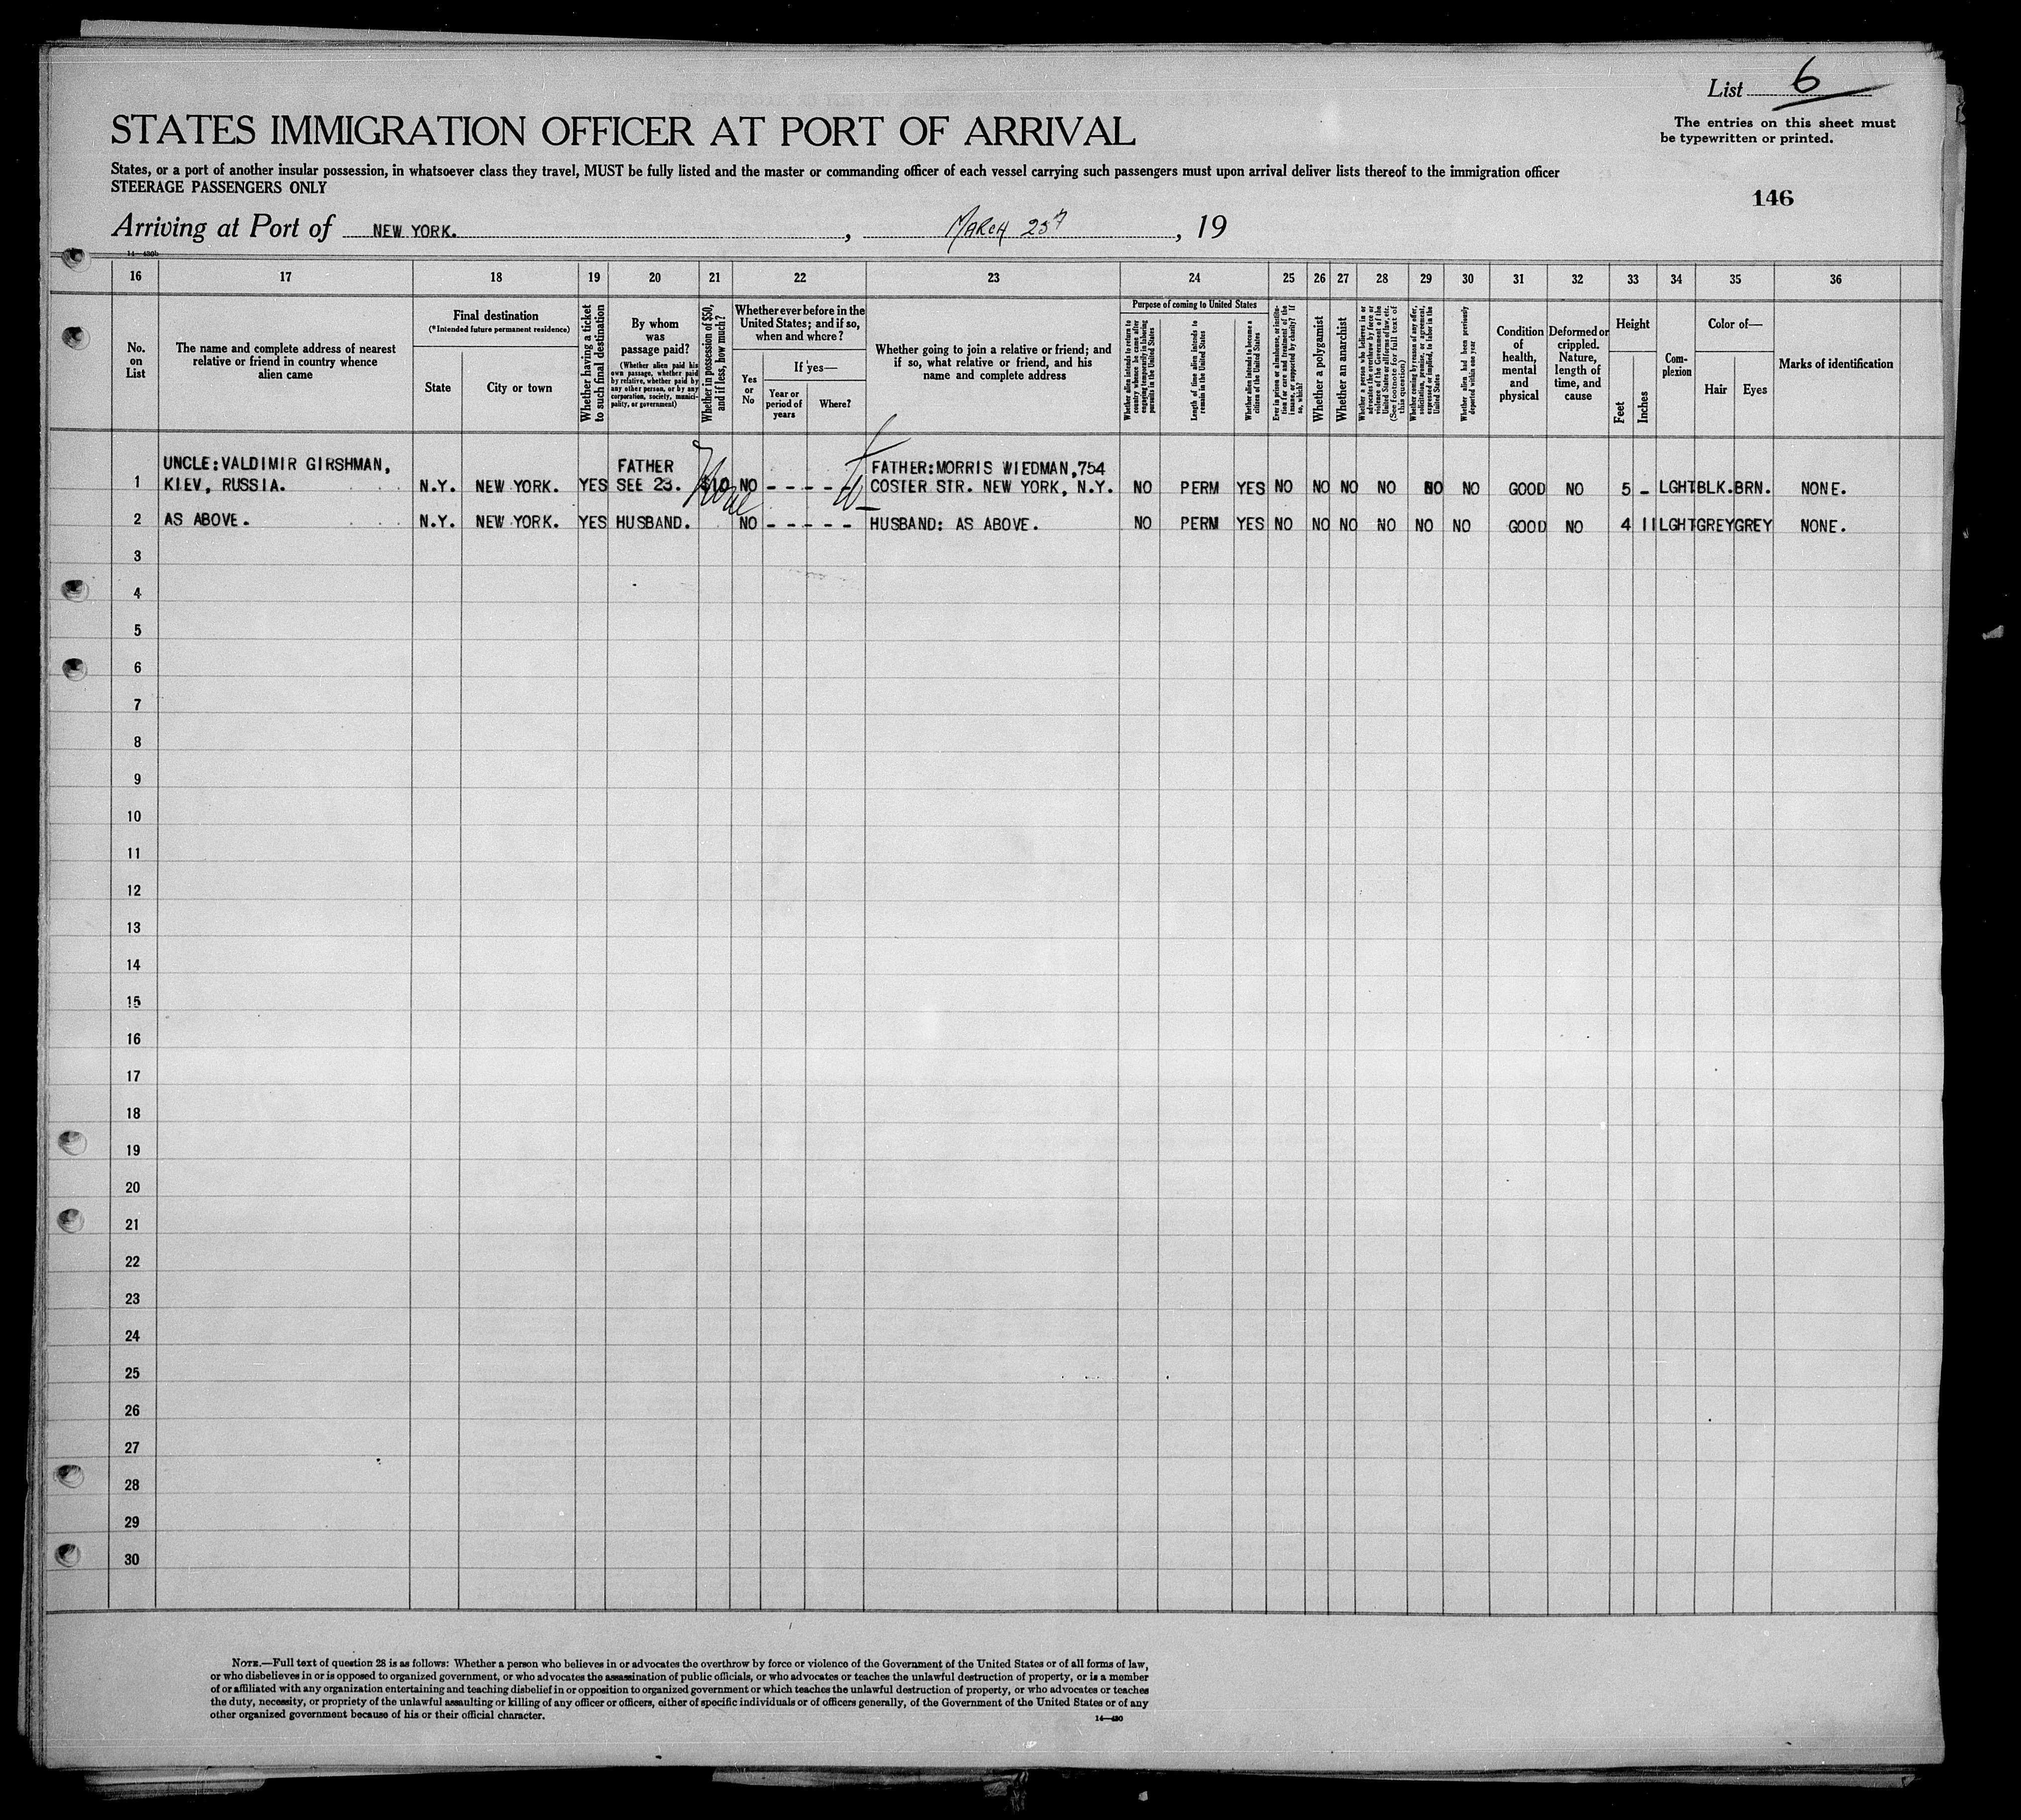 List 6
The entries on this sheet must
be typewritten or printed.
STATES IMMIGRATION OFFICER AT PORT OF ARRIVAL
States, or a port of another insular possession, in whatsoever class they travel, MUST be fully listed and the master or commanding officer of each vessel carrying such passengers must upon arrival deliver lists thereof to the immigration officer
STEERAGE PASSENGERS ONLY
146
Arriving at Port of NEW YORK. , MARCH , 19
14—430b
16 17 18 19 20 21 22 23 24 25 26 27 28 29 30 31 32 33 34 35 36
No.
on
List
The name and complete address of nearest
relative or friend in country whence
alien came
Final destination
(*Intended future permanent residence)
State
City or town
Whether having a ticket
to such final destination
By whom
was
passage paid?
(Whether alien paid his
own passage, whether paid
by relative, whether paid by
any other person, or by any
corporation, society, munici-
pality, or government)
Whether in possession of $50,
and if less, how much?
Whether ever before in the
United States; and if so,
when and where?
Yes
or
No
If yes—
Year or
period of
years
Where?
Whether going to join a relative or friend; and
if so, what relative or friend, and his
name and complete address
Purpose of coming to United States
Whether alien intends to return to
country whence he came after
engaging temporarily in laboring
pursuits in the United States
Length of time alien intends to
remain in the United States
Whether alien intends to become a
citizen of the United States
Ever in prison or almshouse, or institu-
tion for care and treatment of the
insane, or supported by charity? If
so, which?
Whether a polygamist
Whether an anarchist
Whether a person who believes in or
advocates the overthrow by force or
violence of the Government of the
United States or all forms of law, etc.
(See footnote for full text of
this question)
Whether coming by reason of any offer,
solicitation, promise, or agreement,
expressed or implied, to labor in the
United States
Whether alien had been previously
deported within one year
Condition
of
health,
mental
and
physical
Deformed or
crippled.
Nature,
length of
time, and
cause
Height
Feet
Inches
Com-
plexion
Color of—
Hair
Eyes
Marks of identification
UNCLE: VALDIMIR GIRSHMAN, FATHER FATHER: MORRIS WIEDMAN, 754
1 KIEV, RUSSIA. N.Y. NEW YORK. YES SEE 23. $10 None NO - - - - - COSTER STR. NEW YORK, N.Y. NO PERM YES NO NO NO NO NO NO GOOD NO 5 - LGHT BLK. BRN. NONE.
2 AS ABOVE. N.Y. NEW YORK. YES HUSBAND. NO - - - - - HUSBAND: AS ABOVE. NO PERM YES NO NO NO NO NO NO GOOD NO 4 11 LGHT GREY GREY NONE.
3
4
5
6
7
8
9
10
11
12
13
14
15
16
17
18
19
20
21
22
23
24
25
26
27
28
29
30
NOTE.—Full text of question 28 is as follows: Whether a person who believes in or advocates the overthrow by force or violence of the Government of the United States or of all forms of law,
or who disbelieves in or is opposed to organized government, or who advocates the assassination of public officials, or who advocates or teaches the unlawful destruction of property, or is a member
of or affiliated with any organization entertaining and teaching disbelief in or opposition to organized government or which teaches the unlawful destruction of property, or who advocates or teaches
the duty, necessity, or propriety of the unlawful assaulting or killing of any officer or officers, either of specific individuals or of officers generally, of the Government of the United States or of any
other organized government because of his or their official character.
14—430